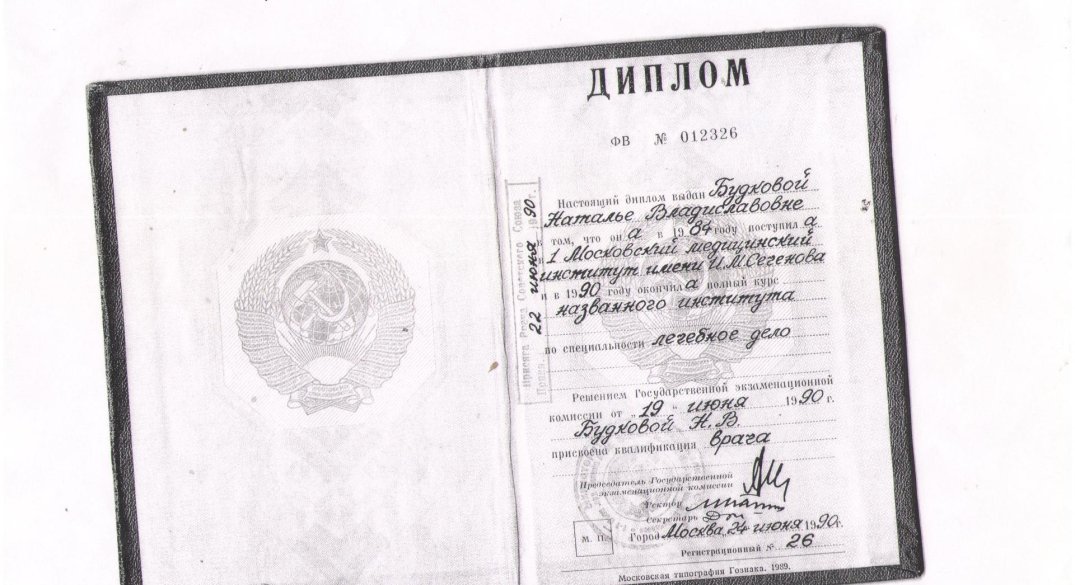 ДИПЛОМ
ФВ № 012326
Настоящий диплом выдан Будковой
Наталье Владиславовне
в том, что он а в 1984 году поступил а
в 1 Московский медицинский
институт имени И.М.Сеченова
и в 1990 году окончил а полный курс
названного института
по специальности лечебное дело
Решением Государственной экзаменационной
комиссии от „19" июня 1990 г.
Будковой Н.В.
присвоена квалификация врача
Председатель Государственной
экзаменационной комиссии
Ректор
Секретарь
М. П.
Город Москва, 24 июня 1990г.
Регистрационный № 26
Московская типография Гознака. 1989.
Присяга Врача Советского Союза
22 июня 1990г.